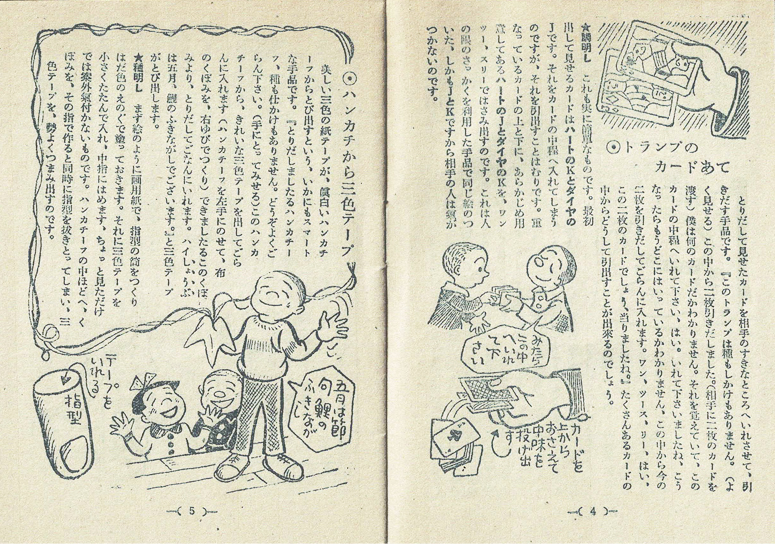 ◎トランプの
カードあて
とりだして見せたカードを相手のすきなところへいれさせて、引
きだす手品です。『このトランプは種もしかけもありません。（よ
く見せる）この中から二枚引きだしました。（相手に二枚のカードを
渡す）僕は何のカードだかわかりません。それを覚えていて、この
カードの中程へいれて下さい、はい。いれて下さいましたね、こう
なったらもうどこにはいっているかわかりません、この中から今の
二枚を引きだしてごらんに入れます。ワン、ツース、リー、はい、
この二枚のカードでしょう、当りましたね。』たくさんあるカードの
中からどうして引出すことが出来るのでしょう。
★種明し　これも実に簡単なものです。最初
出して見せるカードはハートのKとダイヤの
Jです。それをカードの中程へ入れてしまう
のですが、それを引出すことはむりです。重
なっているカードの上と下に、あらかじめ用
意してあるハートのJとダイヤのKを、ワン
ツー、スリーではさみ出すのです。これは人
の眼のさっかくを利用した手品で同じ絵のつ
いた、しかもJとKですから相手の人は氣が
つかないのです。
みたら
この中
へいれ
て下
さい
カードを
上から
おさえて
中味を
投げ出
す
―( 4 )―
◎ハンカチから三色テープ
美しい三色の紙テープが、眞白いハンカチ
ーフからとび出すという、いかにもスマート
な手品です。『とりだしましたるハンカチー
フ、種も仕かけもありません。どうぞよくご
らん下さい。（手にとってみせる）このハンカ
チーフから、きれいな三色テープを出してごら
んに入れます（ハンカチーフを左手にのせて、布
のくぼみを、右ゆびでつくり）できましたるこのくぼ
みより、とりだしてごらんにいれます。ハイしょうぶ
は五月、鯉のふきながしでございます。』と三色テープ
がとび出します。
★種明し　まず絵のように画用紙で、指型の筒をつくり
はだ色のえのぐで塗っておきます。それに三色テープを
小さくたたんで入れ、中指にはめます。ちょっと見ただけ
では案外氣付かないものです。ハンカチーフの中ほどへ、く
ぼみを、その指で作ると同時に指型を抜きとってしまい、三
色テープを、勢よくつまみ出すのです。
五月は節
句鯉の
ふきながし
テープを
いれる
指型
―( 5 )―